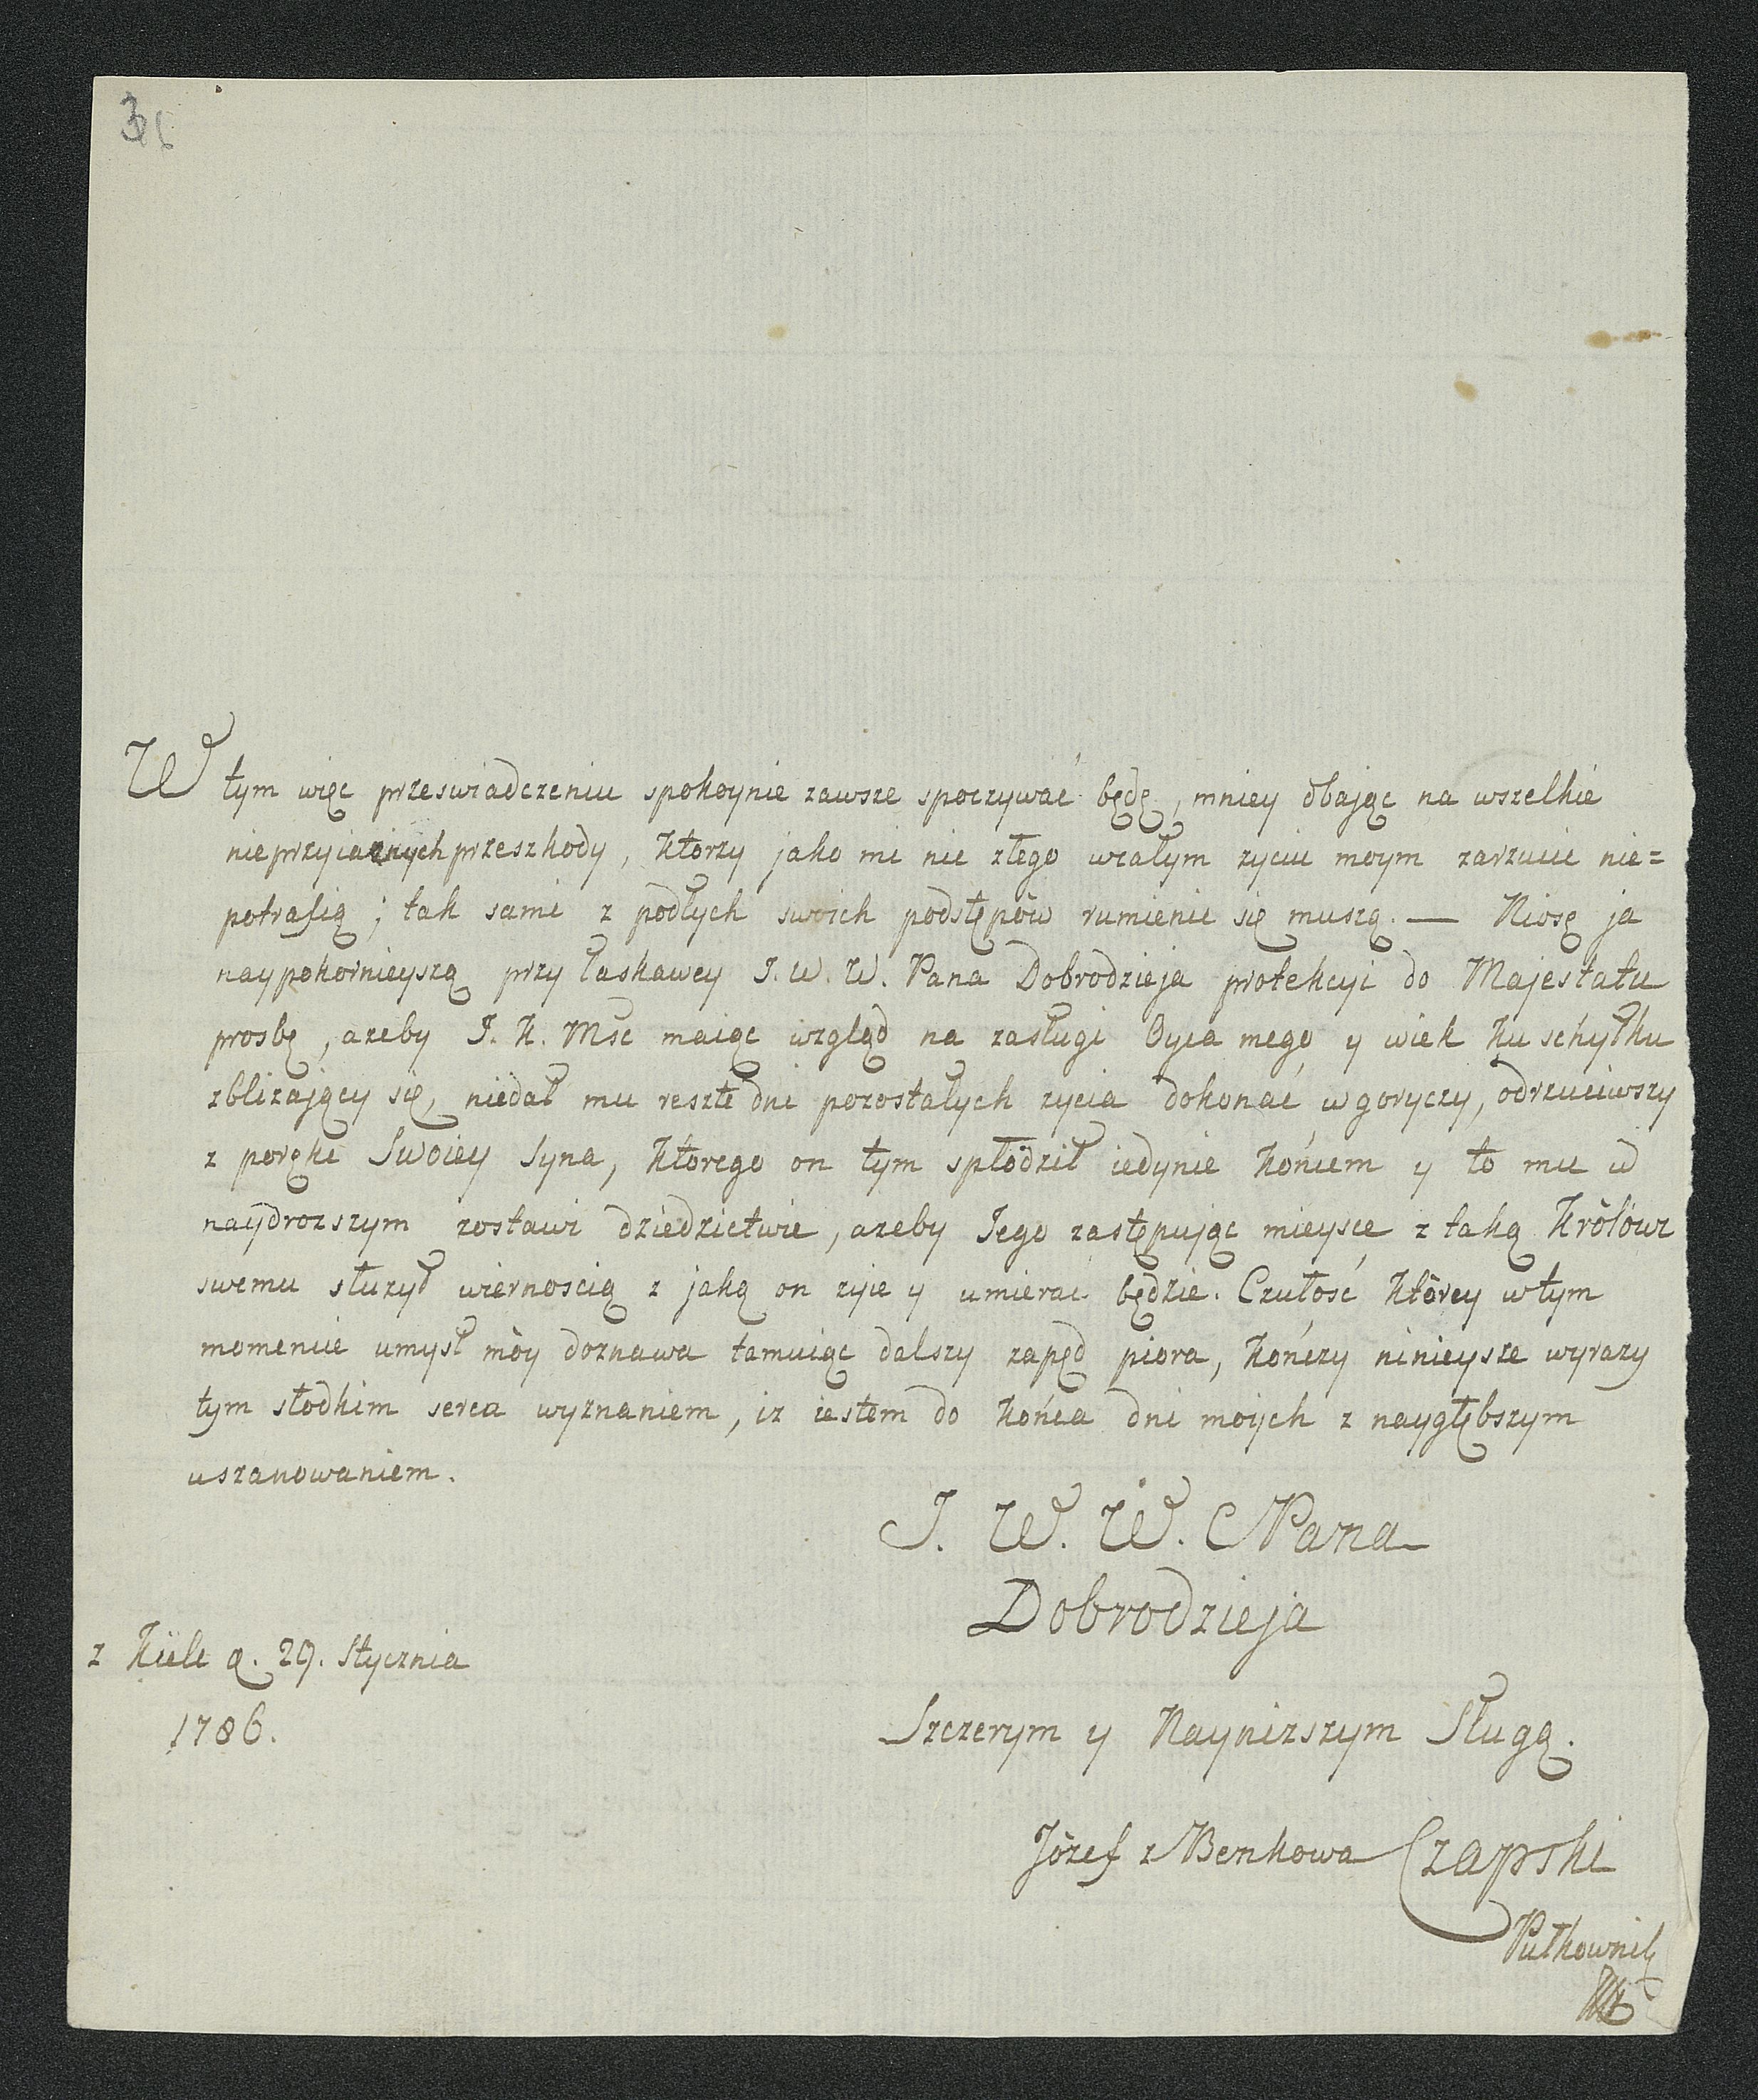 W tym więc przeswiadczeniu spokoynie zawsze spoczywać będę, mniey dbając na wszelkie
nieprzyiaznych przeszkody, którzy jako mi nic złego wcałym zyciu moym zarzucic nie=
potrafią; tak sami z podłych swoich podstępów rumienic się muszą. — Niosę ja
naypokornieyszą przy łaskawey J. W. W. Pana Dobrodzieja protekcyi do Majestatu
prosbę, azeby J. K. Msc maiąc wzgląd na zasługi Oyca mego y wiek ku schyłku
zblizający się, niedał mu reszte dni pozostałych zycia dokonać w goryczy, odrzuciwszy
z poręki Swoiey Syna, ktorego on tym spłodził iedynie końcem y to mu w
naydrozszym zostawi dziedzictwie, azeby Jego zastępując mieysce z taką Królowi
swemu słuzył wiernoscią z jaką on zyie y umierac będzie. Czułość którey w tym
momencie umysł móy doznawa tamuiąc dalszy zapęd piora, kończy ninieysze wyrazy
tym słodkim serca wyznaniem, iz iestem do końca dni moich z naygłębszym
uszanowaniem.
J. W. W. Pana
Dobrodzieja
z Kiele d. 29. Stycznia
1786.
Szczerym y Naynizszym Sługą.
Józef z Benkowa Czapski
Pułkownik